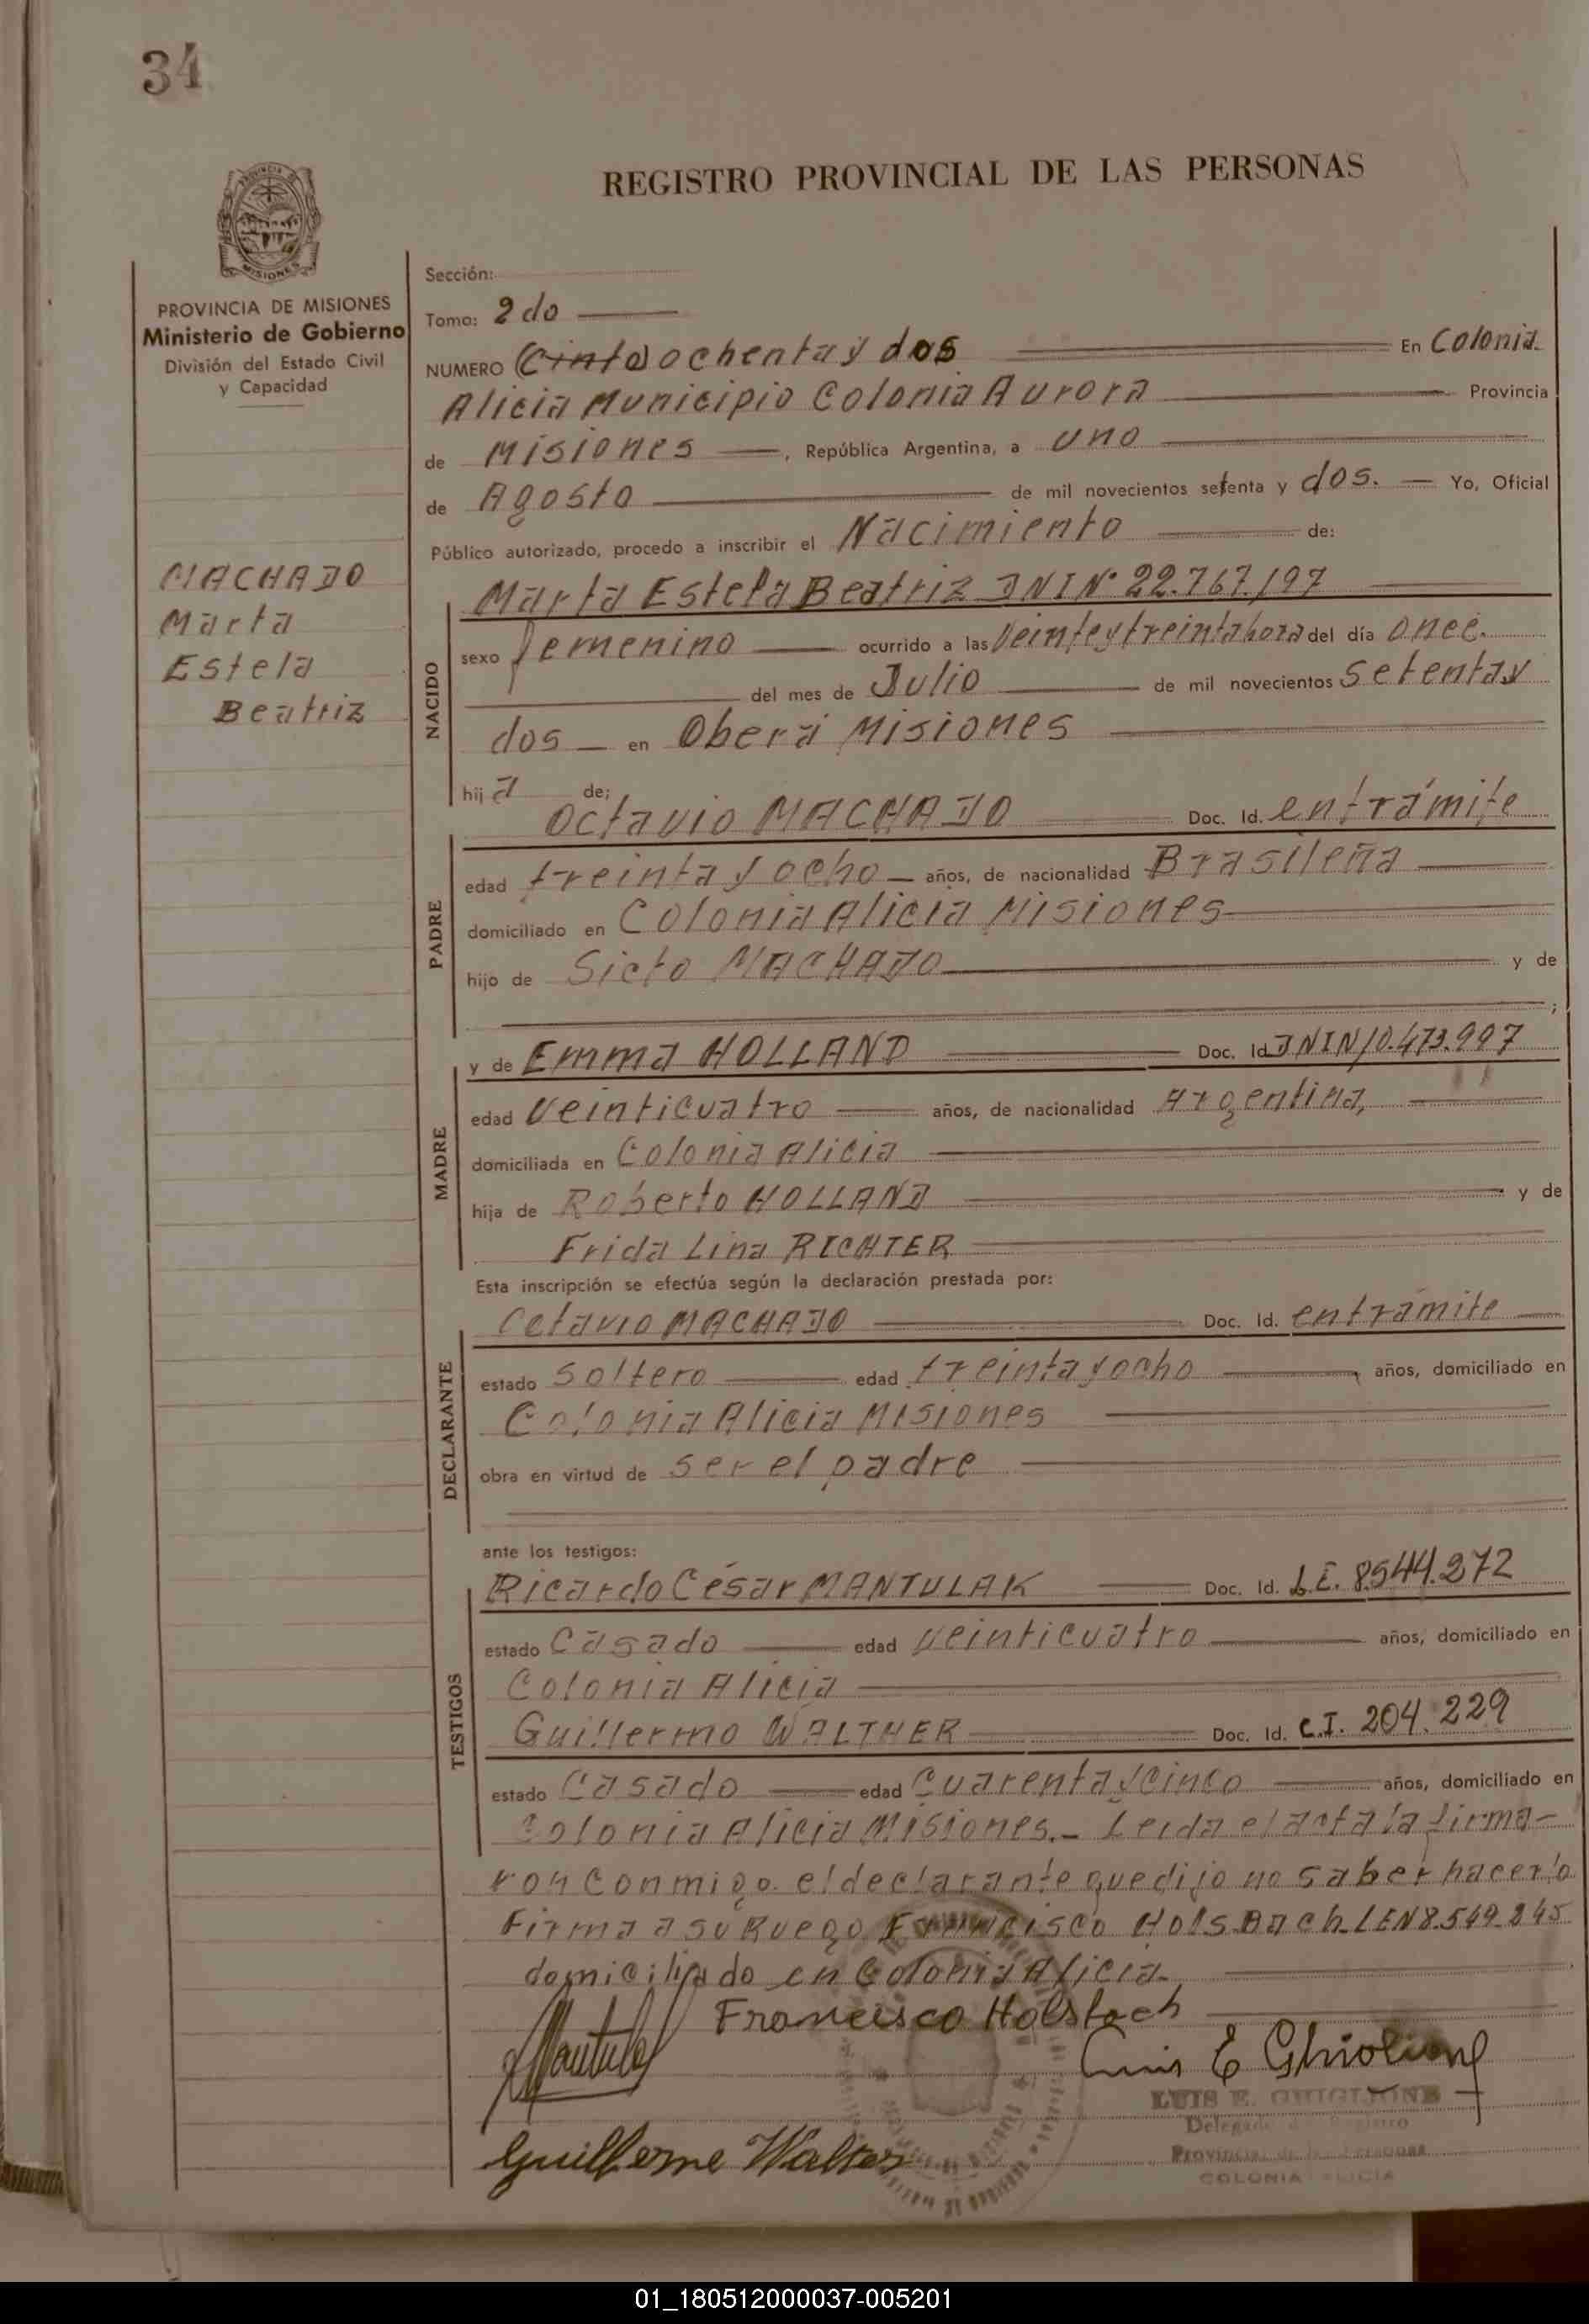 34
REGISTRO PROVINCIAL DE LAS PERSONAS
MISIONES
PROVINCIA DE MISIONES
Ministerio de Gobierno
División del Estado Civil
y Capacidad
MACHADO
Marta
Estela
Beatriz
Sección:
Tomo: 2do
NUMERO (Cinto) ochenta y dos En Colonia
Alicia Municipio Colonia Aurora Provincia
de Misiones, República Argentina, a uno
de Agosto de mil novecientos setenta y dos. Yo, Oficial
Público autorizado, procedo a inscribir el Nacimiento de:
NACIDO
Marta Estela Beatriz DNI Nº 22.767.197
sexo femenino ocurrido a las Veinte y treinta hora del día once.
del mes de Julio de mil novecientos Setenta y
dos en Oberá Misiones
hij a de;
PADRE
Octavio MACHADO Doc. Id. en trámite
edad treinta y ocho años, de nacionalidad Brasileña
domiciliado en Colonia Alicia Misiones
hijo de Sicto MACHADO y de
;
MADRE
y de Emma HOLLAND Doc. Id DNI N 10.473.997
edad Veinticuatro años, de nacionalidad Argentina,
domiciliada en Colonia Alicia
hija de Roberto HOLLAND y de
Frida Lina RICHTER
Esta inscripción se efectúa según la declaración prestada por:
DECLARANTE
Octavio MACHADO Doc. Id. en trámite
estado Soltero edad treinta y ocho años, domiciliado en
Colonia Alicia Misiones
obra en virtud de ser el padre
ante los testigos:
TESTIGOS
Ricardo César MANTULAK Doc. Id. L.E. 8.544.272
estado Casado edad Veinticuatro años, domiciliado en
Colonia Alicia
Guillermo WALTHER Doc. Id. C.I. 204.229
estado Casado edad Cuarenta y cinco años, domiciliado en
Colonia Alicia Misiones.- Leida el acta la firma-
ron conmigo. el declarante que dijo no saber hacerlo
firma a su Ruego Francisco HolsBach LEN 8.549.245
domiciliado en Colonia Alicia.
Francisco Holsbach
Mantulak
Luis E Ghiglione
LUIS E. GHIGLIONE
Delegado del Registro
Provincial de las Personas
COLONIA ALICIA
Guillerme Walter
01_180512000037-005201